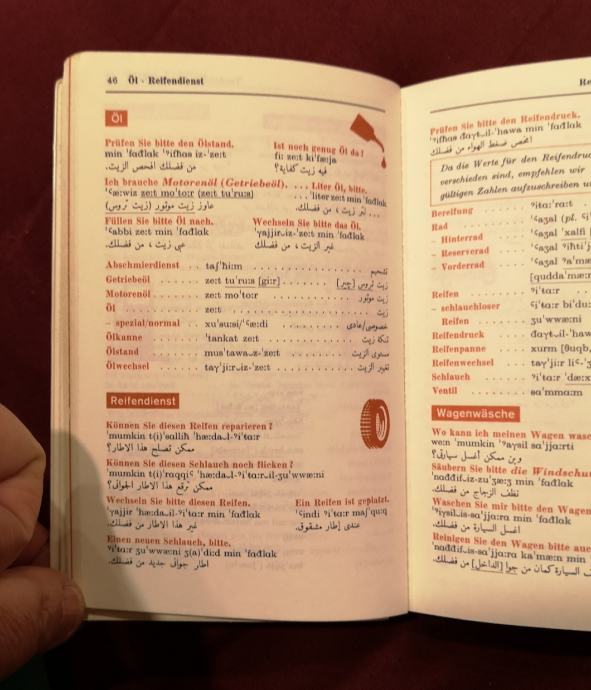 46 Öl · Reifendienst
Öl
Prüfen Sie bitte den Ölstand.
min ˈfađlak ˀifħas iz-ˈzeːt
من فضلك افحص الزيت.
Ist noch genug Öl da?
fiː zeːt kiˈfæːja
فيه زيت كفاية؟
Ich brauche Motorenöl (Getriebeöl).
ˁæːwiz zeːt moˈtoːr (zeːt tuˈruːs)
عاوز زيت موتور (زيت تروس)
... Liter Öl, bitte.
... ˈliter zeːt min ˈfađlak
... لتر زيت ، من فضلك.
Füllen Sie bitte Öl nach.
ˈˁabbi zeːt min ˈfađlak
عبي زيت ، من فضلك.
Wechseln Sie bitte das Öl.
ˈɣajjir‿iz-ˈzeːt min ˈfađlak
غير الزيت ، من فضلك.
Abschmierdienst taʃˈħiːm تشحيم
Getriebeöl zeːt tuˈruːs [giːr] زيت تروس [جير]
Motorenöl zeːt moˈtoːr زيت موتور
Öl zeːt زيت
– spezial/normal xuˈsuːsi/ˈˁæːdi خصوصي/عادي
Ölkanne ˈtankat zeːt تنكة زيت
Ölstand musˈtawa‿z-ˈzeːt مستوى الزيت
Ölwechsel taɣˈjiːr‿iz-ˈzeːt تغيير الزيت
Reifendienst
Können Sie diesen Reifen reparieren?
ˈmumkin t(i)ˈsalliħ ˈhæːda‿l-ˀiˈtaːr
ممكن تصلح هذا الاطار؟
Können Sie diesen Schlauch noch flicken?
ˈmumkin t(i)ˈraqqiˁ ˈhæːda‿l-ˀiˈtaːr‿il-ʒuˈwwæːni
ممكن ترقع هذا الاطار الجوانى؟
Wechseln Sie bitte diesen Reifen.
ˈɣajjir ˈhæːda‿l-ˀiˈtaːr min ˈfađlak
غير هذا الاطار من فضلك.
Ein Reifen ist geplatzt.
ˈˁindi ˀiˈtaːr maʃˈquːq
عندي إطار مشقوق.
Einen neuen Schlauch, bitte.
ˀiˈtaːr ʒuˈwwæːni ʒ(a)ˈdiːd min ˈfađlak
اطار جوانى جديد من فضلك.
Prüfen Sie bitte den Reifendruck.
ˀifħas đaɣt‿il-ˈhawa min ˈfađlak
افحص ضغط الهواء من فضلك.
Da die Werte für den Reifendruck
verschieden sind, empfehlen wir
gültigen Zahlen aufzuschreiben
Bereifung
Rad ˈˁaʒal (pl.
– Hinterrad ˈˁaʒal
– Reserverad ˈˁaʒal
– Vorderrad ˈˁaʒal
Reifen ˀiˈtaːr
– schlauchloser ˀiˈtaːr
Reifen ʒuˈwwæːni
Reifendruck đaɣt‿il-ˈhawa
Reifenpanne xurm
Reifenwechsel
Schlauch ˀiˈtaːr
Ventil saˈmmaːm
Wagenwäsche
Wo kann ich meinen Wagen
weːn ˈmumkin ˀaɣsil saˈjjaːrti
وين ممكن أغسل سيارتى؟
Säubern Sie bitte die
ˈnađđif‿iz-zuˈʒæːʒ min ˈfađlak
نظف الزجاج من فضلك.
Waschen Sie mir bitte den
ˀiɣsil‿is-saˈjjaːra min ˈfađlak
أغسل السيارة من فضلك.
Reinigen Sie den Wagen bitte
ˈnađđif‿is-saˈjjaːra kaˈmæːn min
السيارة كمان من جوا [الداخل] من فضلك.